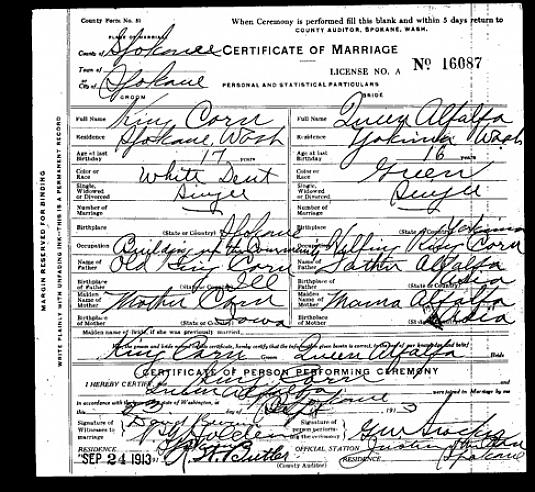 County Form No. 51
When Ceremony is performed fill this blank and within 5 days return to
COUNTY AUDITOR, SPOKANE, WASH.
PLACE OF MARRIAGE
County of Spokane
CERTIFICATE OF MARRIAGE
Town of
or
City of Spokane
LICENSE NO. A Nº 16087
PERSONAL AND STATISTICAL PARTICULARS
GROOM BRIDE
Full Name King Corn Full Name Queen Alfalfa
Residence Spokane, Wash Residence Yakima Wash
Age at last Birthday 17 years Age at last Birthday 16 years
Color or Race White Dent Color or Race Green
Single, Widowed or Divorced Single Single, Widowed or Divorced Single
Number of Marriage Number of Marriage
Birthplace (State or Country) Spokane Birthplace (State or Country) Yakima
Occupation Building up the Community Occupation Helping King Corn
Name of Father Old King Corn Name of Father Father Alfalfa
Birthplace of Father (State or Country) Ill Birthplace of Father
Maiden Name of Mother Mother Corn Maiden Name of Mother Mama Alfalfa
Birthplace of Mother (State or Country) Iowa Birthplace of Mother
Maiden name of bride, if she was previously married
We, the groom and bride named in this certificate, hereby certify that the information given herein is correct, to the best of our knowledge and belief
King Corn Groom Queen Alfalfa Bride
CERTIFICATE OF PERSON PERFORMING CEREMONY
I HEREBY CERTIFY, that King Corn and
Queen Alfalfa were joined in Marriage by me
in accordance with the laws of the State of Washington, at Spokane
this 23 day of Sept 1913
Signature of Witnesses to marriage
Signature of person performing the ceremony
RESIDENCE OFFICIAL STATION
RESIDENCE Spokane
SEP 24 1913
(County Auditor)
MARGIN RESERVED FOR BINDING
WRITE PLAINLY WITH UNFADING INK—THIS IS A PERMANENT RECORD